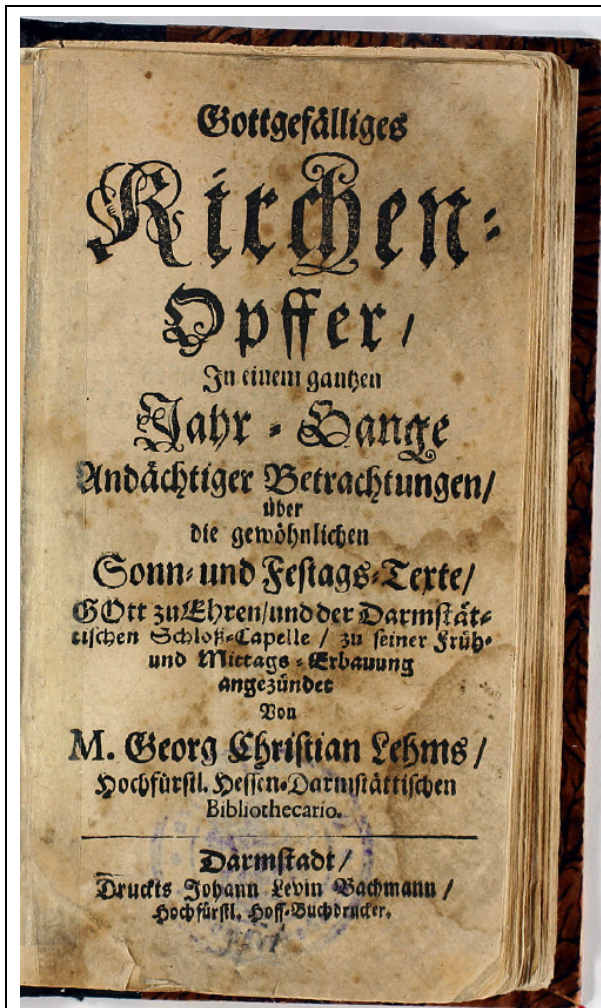 Gottgefälliges
Kirchen-
Opffer/
In einem gantzen
Jahr-Gange
Andächtiger Betrachtungen/
über
die gewöhnlichen
Sonn- und Festags-Texte/
GOtt zu Ehren/ und der Darmstät-
tischen Schloß-Capelle / zu seiner Früh-
und Mittags-Erbauung
angezündet
Von
M. Georg Christian Lehms/
Hochfürstl. Hessen-Darmstättischen
Bibliothecario.
Darmstadt/
Druckts Johann Levin Bachmann/
Hochfürstl. Hoff-Buchdrucker.